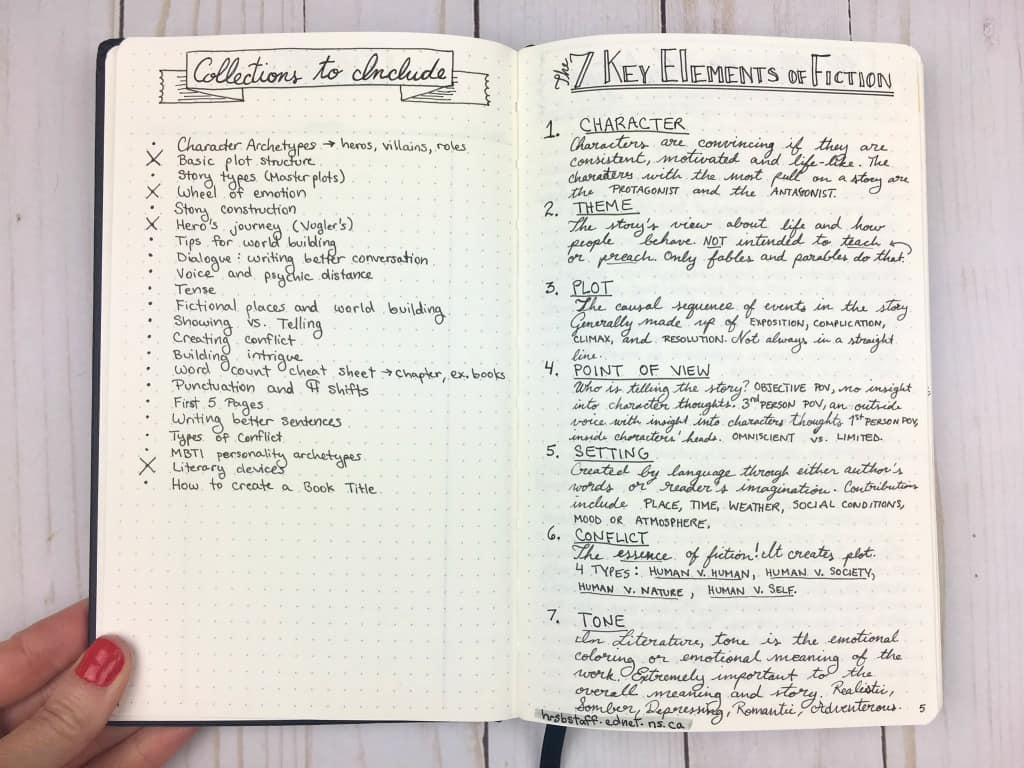 Collections to Include
• Character Archetypes → heros, villains, roles
X Basic plot structure
• Story types (Master plots)
X Wheel of emotion
• Story construction
X Hero's journey (Vogler's)
• Tips for world building
• Dialogue: writing better conversation
• Voice and psychic distance
• Tense
• Fictional places and world building
• Showing vs. Telling
• Creating conflict
• Building intrigue
• Word count cheat sheet → chapter, ex. books
• Punctuation and ¶ shifts
• First 5 Pages
• Writing better sentences
• Types of Conflict
• MBTI personality archetypes
X Literary devices
• How to create a Book Title
The 7 Key Elements of Fiction
1. CHARACTER
Characters are convincing if they are
consistent, motivated and life-like. The
characters with the most pull on a story are
the PROTAGONIST and the ANTAGONIST.
2. THEME
The story's view about life and how
people behave. NOT intended to teach
or preach. Only fables and parables do that.
3. PLOT
The causal sequence of events in the story
Generally made up of EXPOSITION, COMPLICATION,
CLIMAX, and RESOLUTION. Not always in a straight
line.
4. POINT OF VIEW
Who is telling the story? OBJECTIVE POV, no insight
into character thoughts. 3rd PERSON POV, an outside
voice with insight into characters thoughts 1st PERSON POV,
inside characters' heads. OMNISCIENT vs. LIMITED.
5. SETTING
Created by language through either author's
words or reader's imagination. Contributions
include PLACE, TIME, WEATHER, SOCIAL CONDITIONS,
MOOD OR ATMOSPHERE,
6. CONFLICT
The essence of fiction! It creates plot.
4 TYPES: HUMAN V. HUMAN, HUMAN V. SOCIETY,
HUMAN V. NATURE, HUMAN V. SELF.
7. TONE
In Literature, tone is the emotional
coloring or emotional meaning of the
work. Extremely important to the
overall meaning and story. Realistic,
Somber, Depressing, Romantic, Adventerous.
hrsbstaff.ednet.ns.ca
5